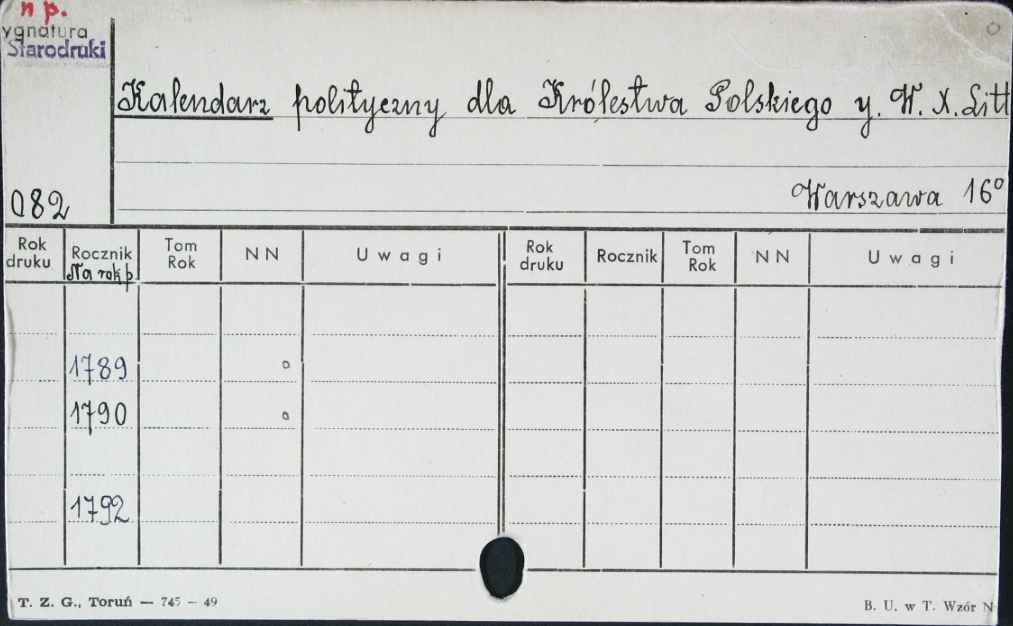 n p.
ygnatura
Starodruki
Kalendarz polityczny dla Królestwa Polskiego y. W. X. Litt
082
Warszawa 16º
Rok druku Rocznik Na rok p. Tom Rok NN Uwagi Rok druku Rocznik Tom Rok NN Uwagi
1789
1790
1792
T. Z. G., Toruń — 745 — 49
B. U. w T. Wzór N